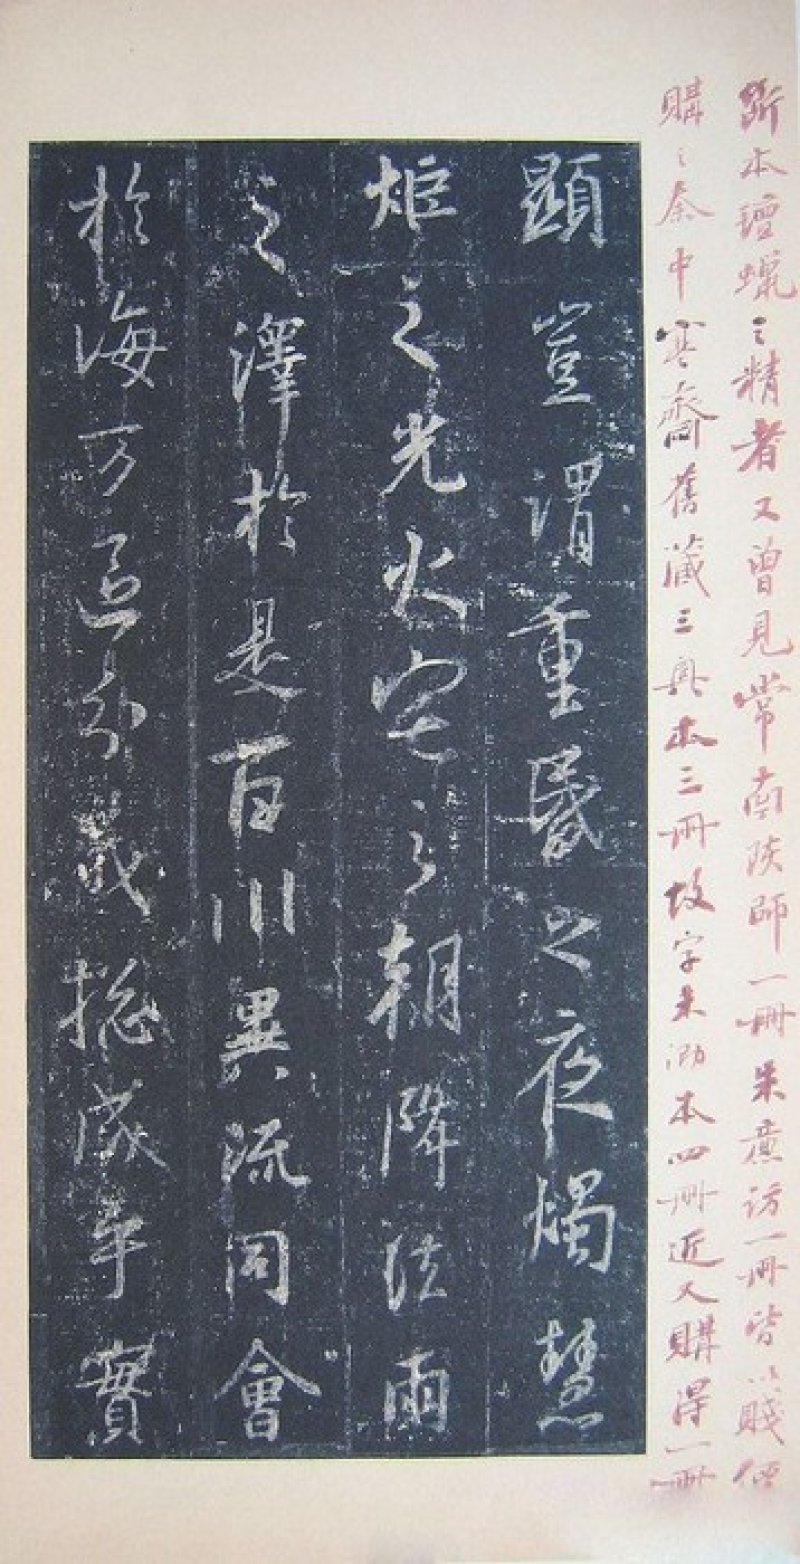 斷本氊蠟之精者又曾見常南陔師一冊朱訪一冊皆以賤值
購之秦中寒齋舊藏三本三冊故字未泐本四冊近人購得一冊
顯豈謂重昏之夜燭慧
炬之光火宅之朝降法雨
之澤於是百川異流同會
於海万區分義揔成乎實